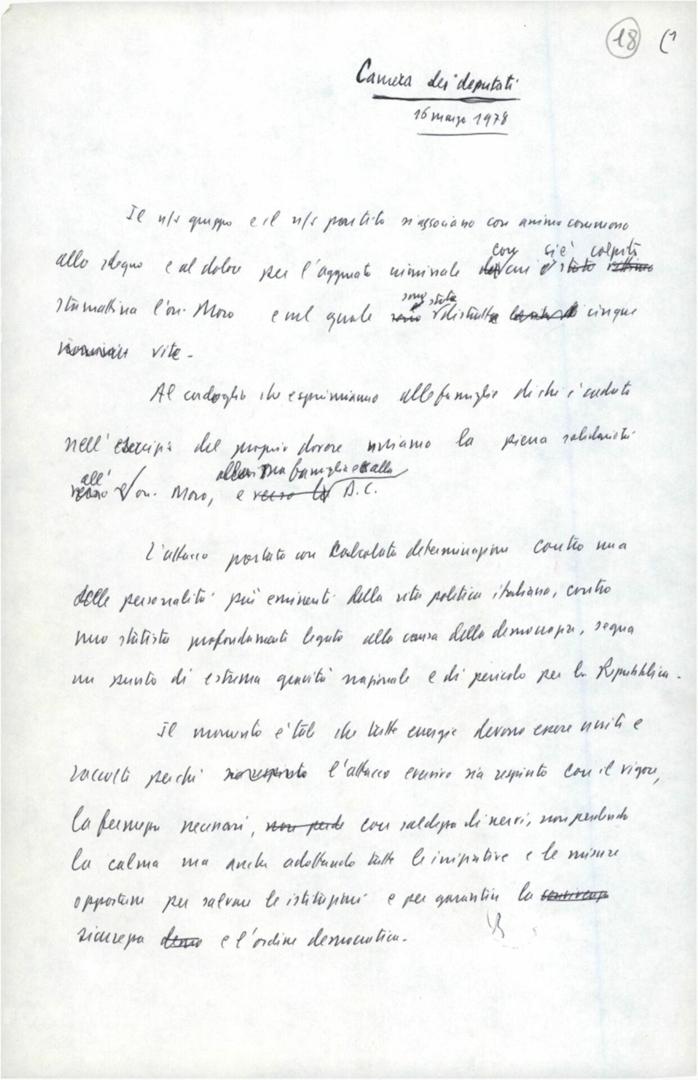 18 (1
Camera dei deputati
16 marzo 1978
Il n/s gruppo e il n/s partito si associano con animo commosso
con si è colpito
allo sdegno e al dolore per l'agguato criminale cui è stato
sono state
stamattina l'on. Moro e nel quale distrutte cinque
vite.
Al cordoglio che esprimiamo alle famiglie di chi è caduto
nell'esercizio del proprio dovere uniamo la piena solidarietà
all' alla sua famiglia e alla
on. Moro, e verso la D.C.
L'attacco portato con calcolata determinazione contro una
delle personalità più eminenti della vita politica italiana, contro
uno statista profondamente legato alla causa della democrazia, segna
un punto di estrema gravità nazionale e di pericolo per la Repubblica.
Il momento è tale che tutte energie devono essere unite e
raccolte perché l'attacco eversivo sia respinto con il vigore,
la fermezza necessari, non perde con saldezza di nervi, non perdendo
la calma ma anche adottando tutte le iniziative e le misure
opportune per salvare le istituzioni e per garantire la
sicurezza e l'ordine democratico.